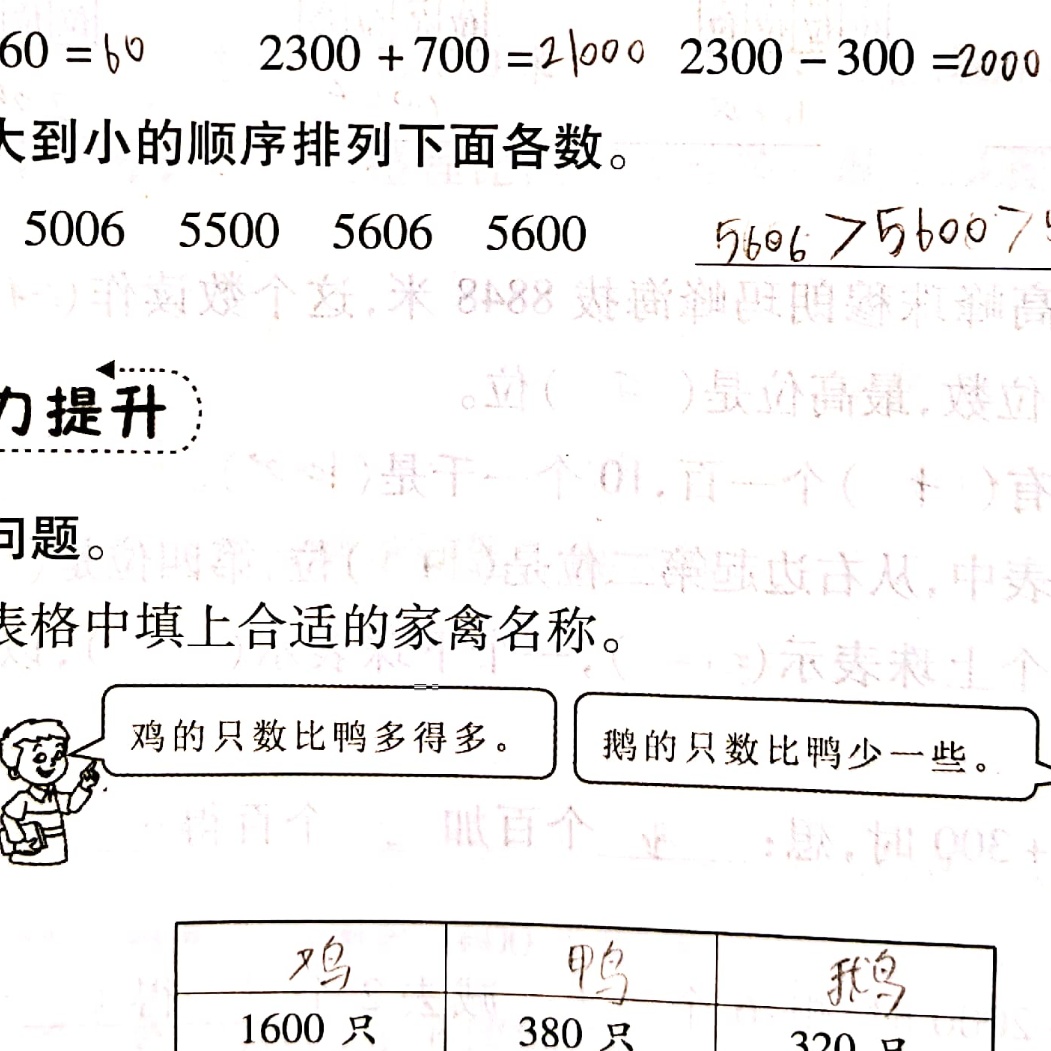 60 = 60 2300 + 700 = 21000 2300 - 300 = 2000
大到小的顺序排列下面各数。
5006 5500 5606 5600 5606 > 5600 >
力提升
问题。
表格中填上合适的家禽名称。
鸡的只数比鸭多得多。 鹅的只数比鸭少一些。
鸡 鸭 鹅
1600 只 380 只 320 只